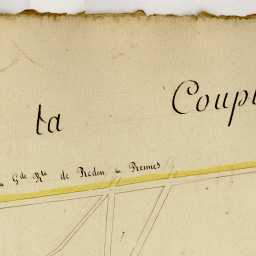 la Coupu
G.de R.te de Redon à Rennes